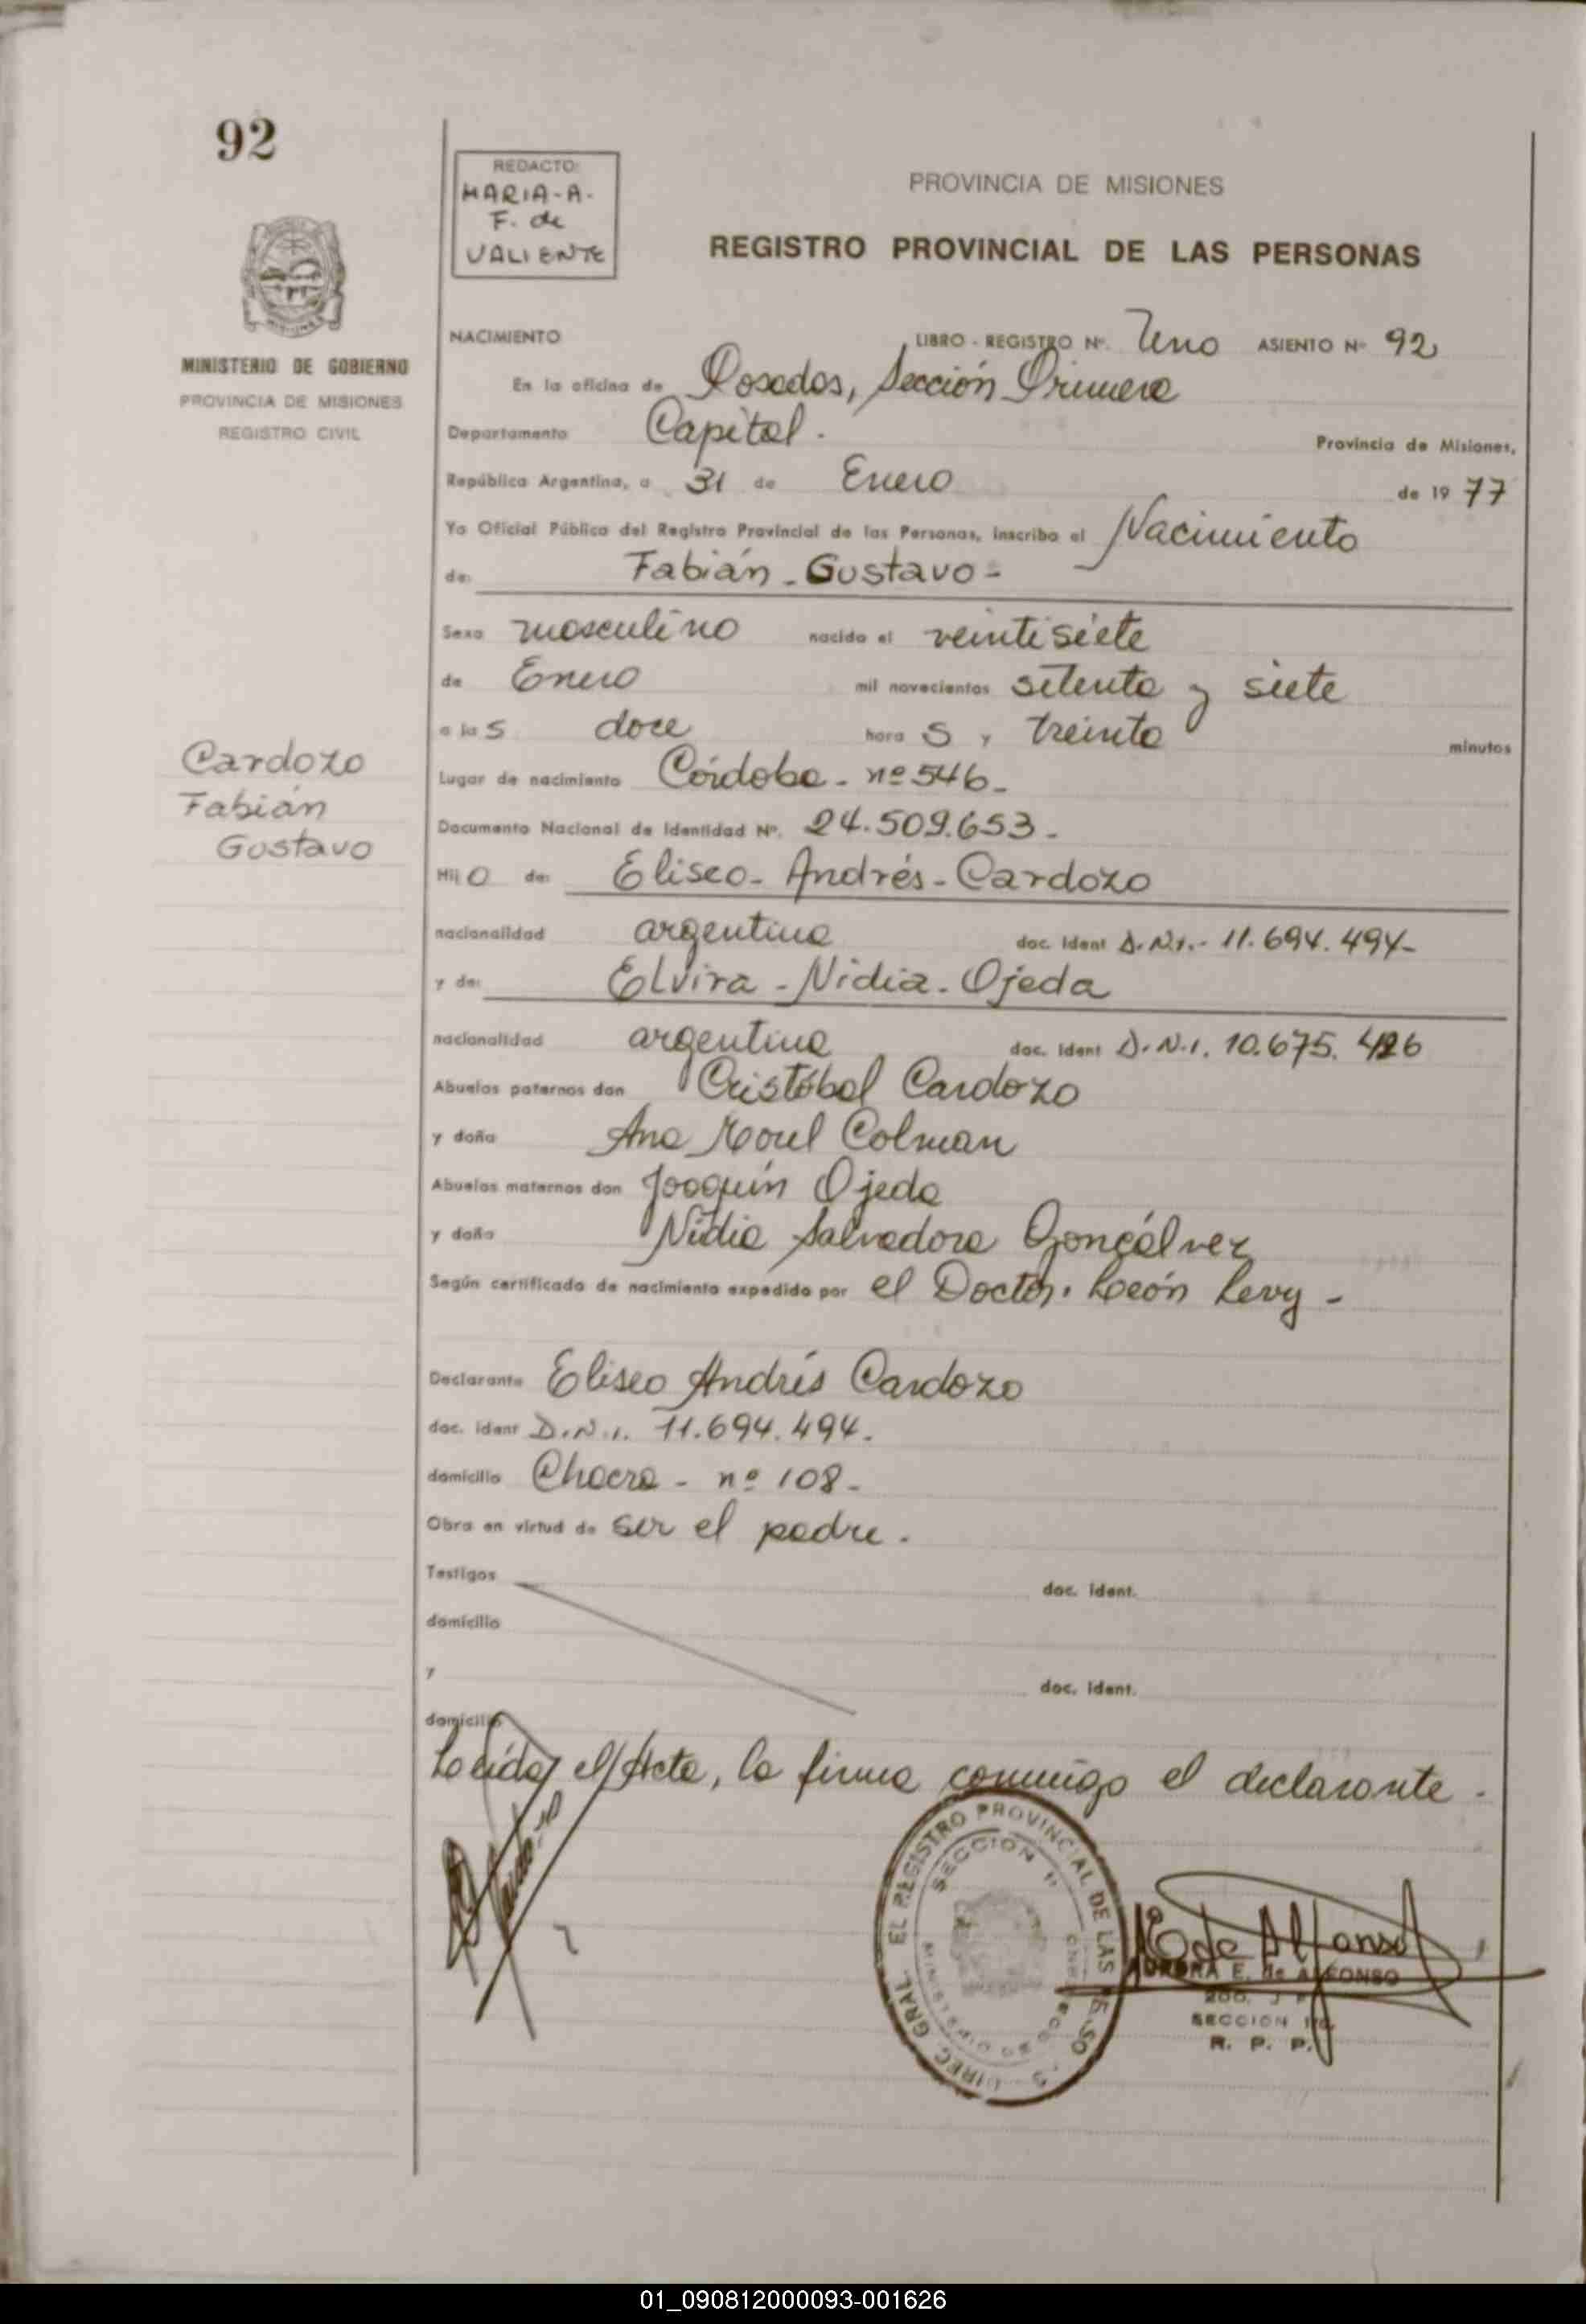 92
REDACTO:
MARIA-A.
F. de
VALIENTE
PROVINCIA DE MISIONES
REGISTRO PROVINCIAL DE LAS PERSONAS
MINISTERIO DE GOBIERNO
PROVINCIA DE MISIONES
REGISTRO CIVIL
NACIMIENTO LIBRO - REGISTRO Nº. Uno ASIENTO Nº 92
En la oficina de Posadas, Sección Primera
Departamento Capital. Provincia de Misiones,
República Argentina, a 31 de Enero de 1977
Yo Oficial Público del Registro Provincial de las Personas, inscribo el Nacimiento
de: Fabián - Gustavo -
Sexo masculino nacido el veintisiete
de Enero mil novecientos setenta y siete
a las doce horas y treinta minutos
Lugar de nacimiento Córdoba - nº 546 -
Documento Nacional de Identidad Nº. 24.509.653 -
Hijo de: Eliseo - Andrés - Cardozo
nacionalidad argentina doc. ident D.N.I. - 11.694.494 -
y de: Elvira - Nidia - Ojeda
nacionalidad argentina doc. ident D.N.I. 10.675.
Abuelos paternos don Cristóbal Cardozo
y doña Ana Morel Colman
Abuelos maternos don Joaquín Ojeda
y doña Nidia Salvadora Gonçálvez
Según certificado de nacimiento expedido por el Doctor. León Levy -
Declarante Eliseo Andrés Cardozo
doc. ident D.N.I. 11.694.494.
domicilio Chacra - nº 108 -
Obra en virtud de ser el padre.
Testigos doc. ident.
domicilio
y doc. ident.
domicilio
Leída el Acta, la firma conmigo el declarante.
Cardozo
Fabián
Gustavo
DIREC. GRAL. EL REGISTRO PROVINCIAL DE LAS
SECCION
de Alfonso
AURORA E. de ALFONSO
SECCION 1ra.
R. P. P.
01_090812000093-001626